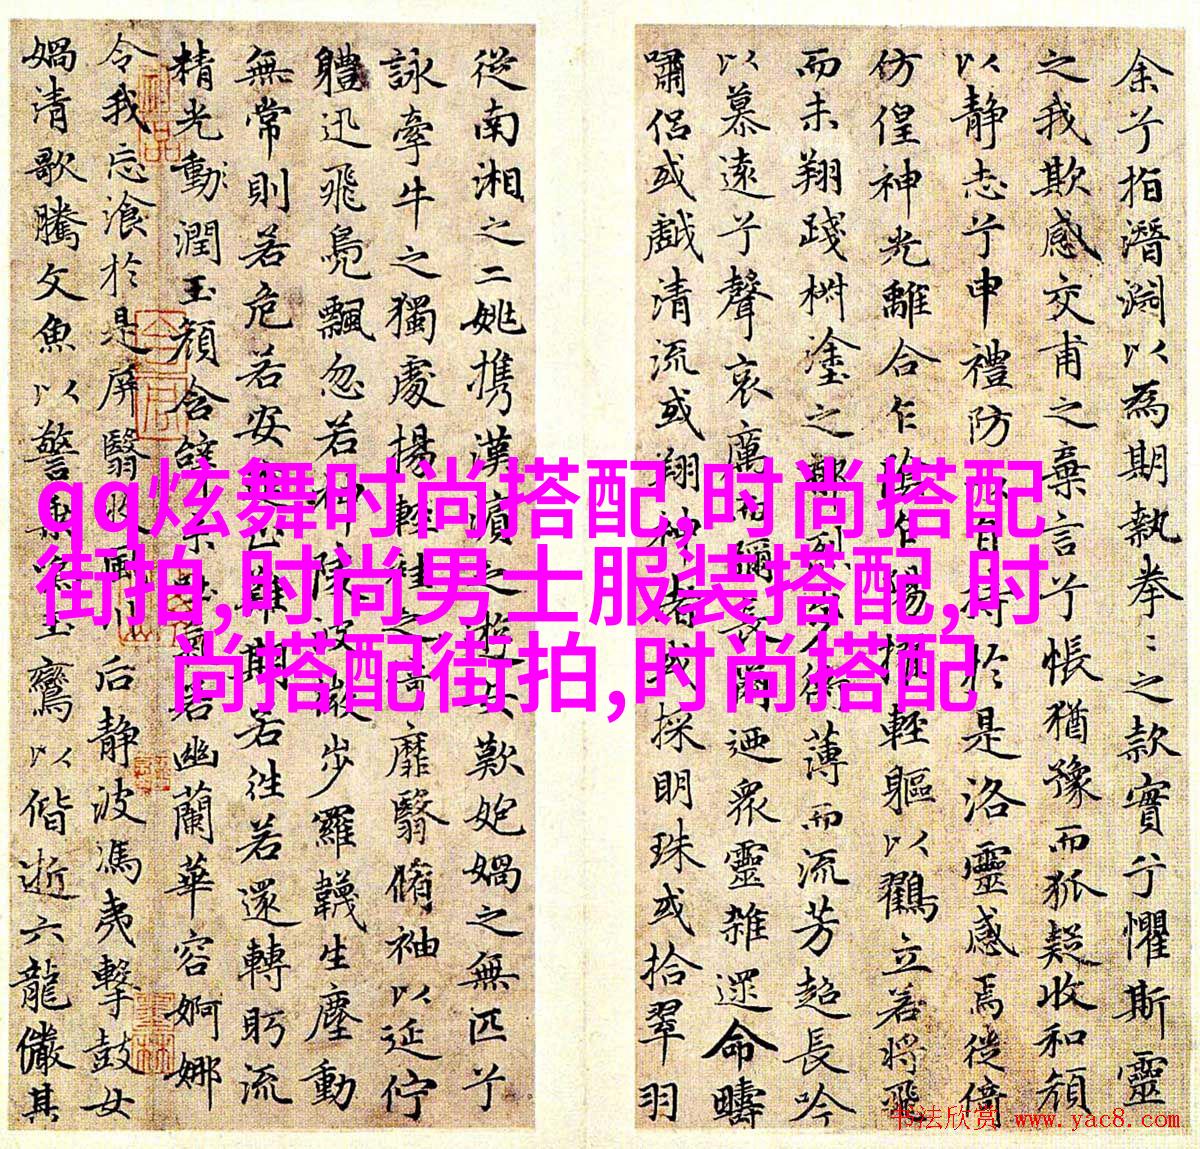 余兮指潛淵以為期執拳〻之款實兮懼斯靈
之我欺感交甫之棄言兮悵猶豫而狐疑收和顏
以静志兮申禮防以自持於是洛靈感焉徙倚
仿偟神光離合乍陰乍陽擢輕軀以鶴立若將飛
而未翔踐椒塗之郁烈步蘅薄而流芳超長吟
以慕遠兮聲哀厲而彌長爾迺衆靈雜遝命疇
嘯侶或戲清流或翔神渚或採明珠或拾翠羽
從南湘之二姚攜漢濱之遊女歎匏媧之無匹兮
詠牽牛之獨處揚輕袿之猗靡翳脩袖以延佇
體迅飛鳧飄忽若神陵波微步羅韈生塵動
無常則若危若安進止難期若往若還轉眄流
精光動潤玉顏含辭未吐氣若幽蘭華容婀娜
令我忘飡於是屏翳收風川后静波馮夷擊鼓女
媧清歌騰文魚以警乘鳴玉鸞以偕逝六龍儼其
qq炫舞时尚搭配,时尚搭配
街拍,时尚男士服装搭配,时
尚搭配街拍,时尚搭配
书法欣赏 www.yac8.com